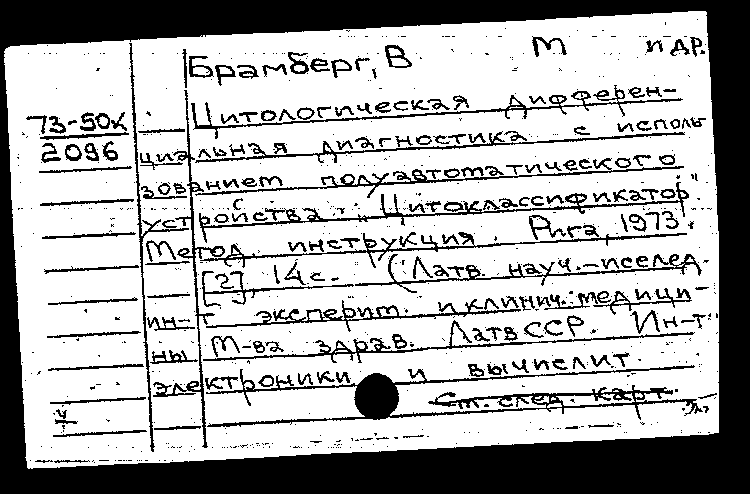 Брамберг, В М и др.
73-50к Цитологическая дифферен-
2096 циальная диагностика с исполь
зованием полуавтоматического
устройства "Цитоклассификатор".
Метод. инструкция. Рига, 1973.
[2], 14 с. (Латв. науч.-исслед.
ин-т эксперит. и клинич. медици-
ны М-ва здрав. Латв ССР. Ин-т
электроники и вычислит.
См. след. карт.